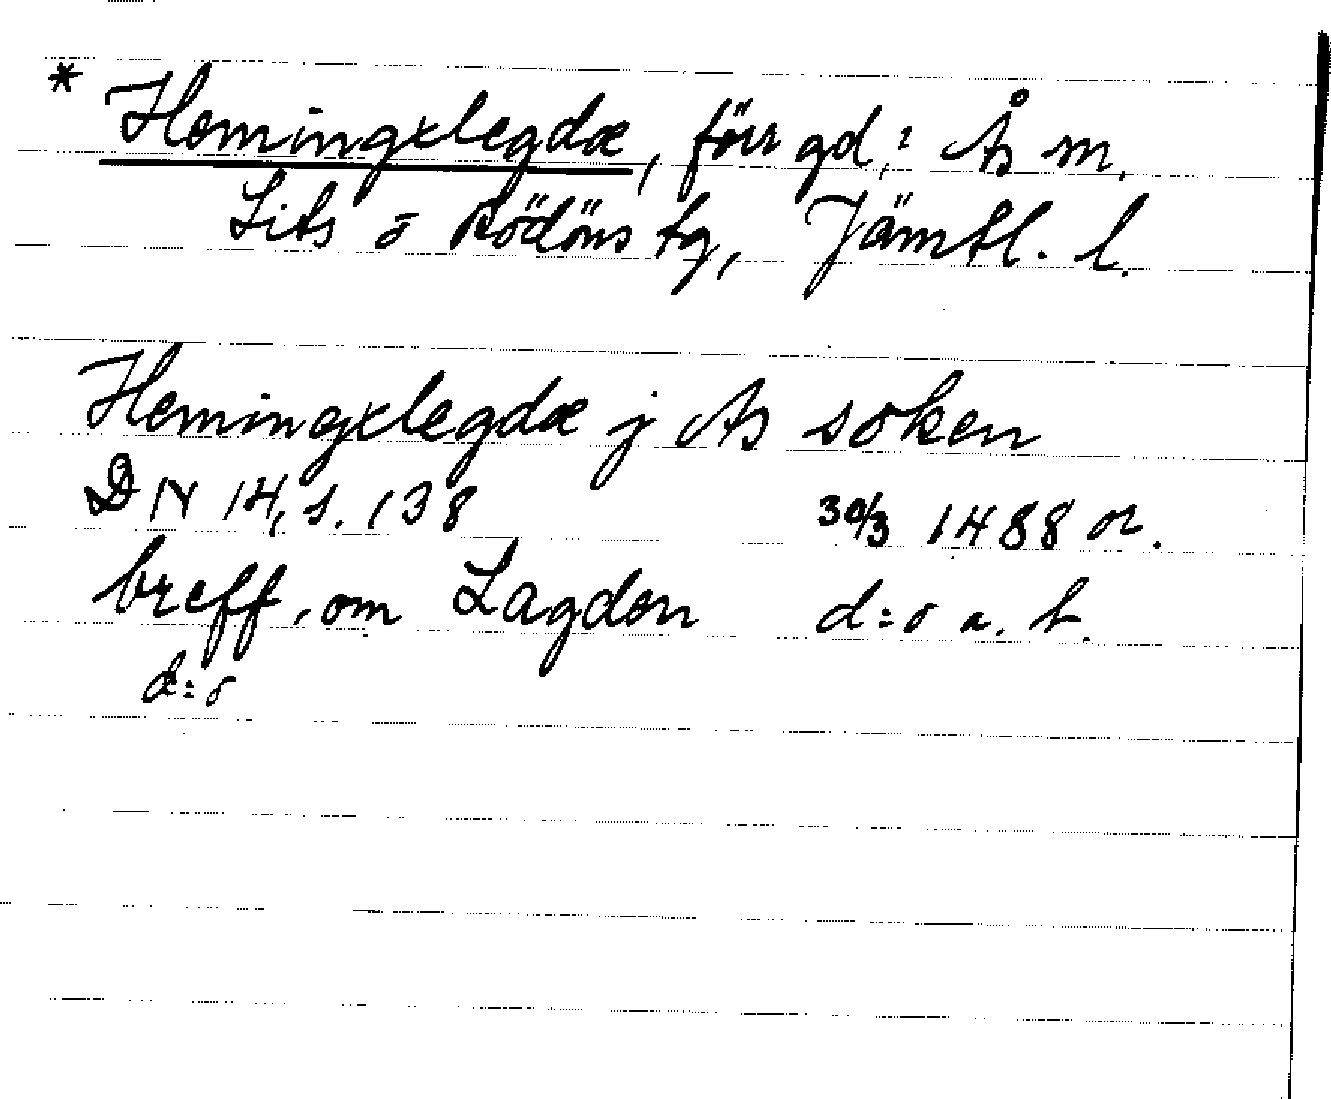 * Hemingxlegdæ, förr gd, i Ås sn,
Lits o Rödöns tg, Jämtl. l.
Hemingxlegdæ j As soken
DN 14, s. 138 30/3 1488 or.
breff om Lagden d:o a. t.
d:o